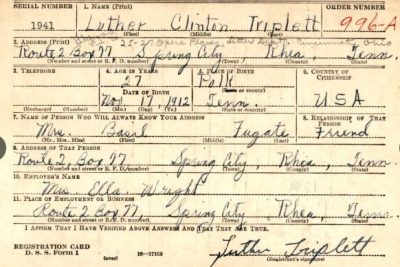 SERIAL NUMBER 1. NAME (Print) ORDER NUMBER
1941 Luther Clinton Triplett 996-A
(First) (Middle) (Last)
2. ADDRESS (Print) 25-27 Opera Place, Cincinnati, Ohio
Route 2 Box 77 Spring City, Rhea, Tenn.
(Number and street or R. F. D. number) (Town) (County) (State)
3. TELEPHONE 4. AGE IN YEARS 5. PLACE OF BIRTH 6. COUNTRY OF CITIZENSHIP
27 Polk
(Town or county)
DATE OF BIRTH
Nov. 17, 1912 Tenn. USA
(Exchange) (Number) (Mo.) (Day) (Yr.) (State or country)
7. NAME OF PERSON WHO WILL ALWAYS KNOW YOUR ADDRESS 8. RELATIONSHIP OF THAT PERSON
Mrs. Basil Fugate Friend
(Mr., Mrs., Miss) (First) (Middle) (Last)
9. ADDRESS OF THAT PERSON
Route 2, Box 77 Spring City, Rhea, Tenn
(Number and street or R. F. D. number) (Town) (County) (State)
10. EMPLOYER'S NAME
Mrs. Ella Wright
11. PLACE OF EMPLOYMENT OR BUSINESS
Route 2 Box 77 Spring City Rhea, Tenn.
(Number and street or R. F. D. number) (Town) (County) (State)
I AFFIRM THAT I HAVE VERIFIED ABOVE ANSWERS AND THAT THEY ARE TRUE.
REGISTRATION CARD
D. S. S. FORM 1 (over) 16-17105 Luther Triplett
(Registrant's signature)